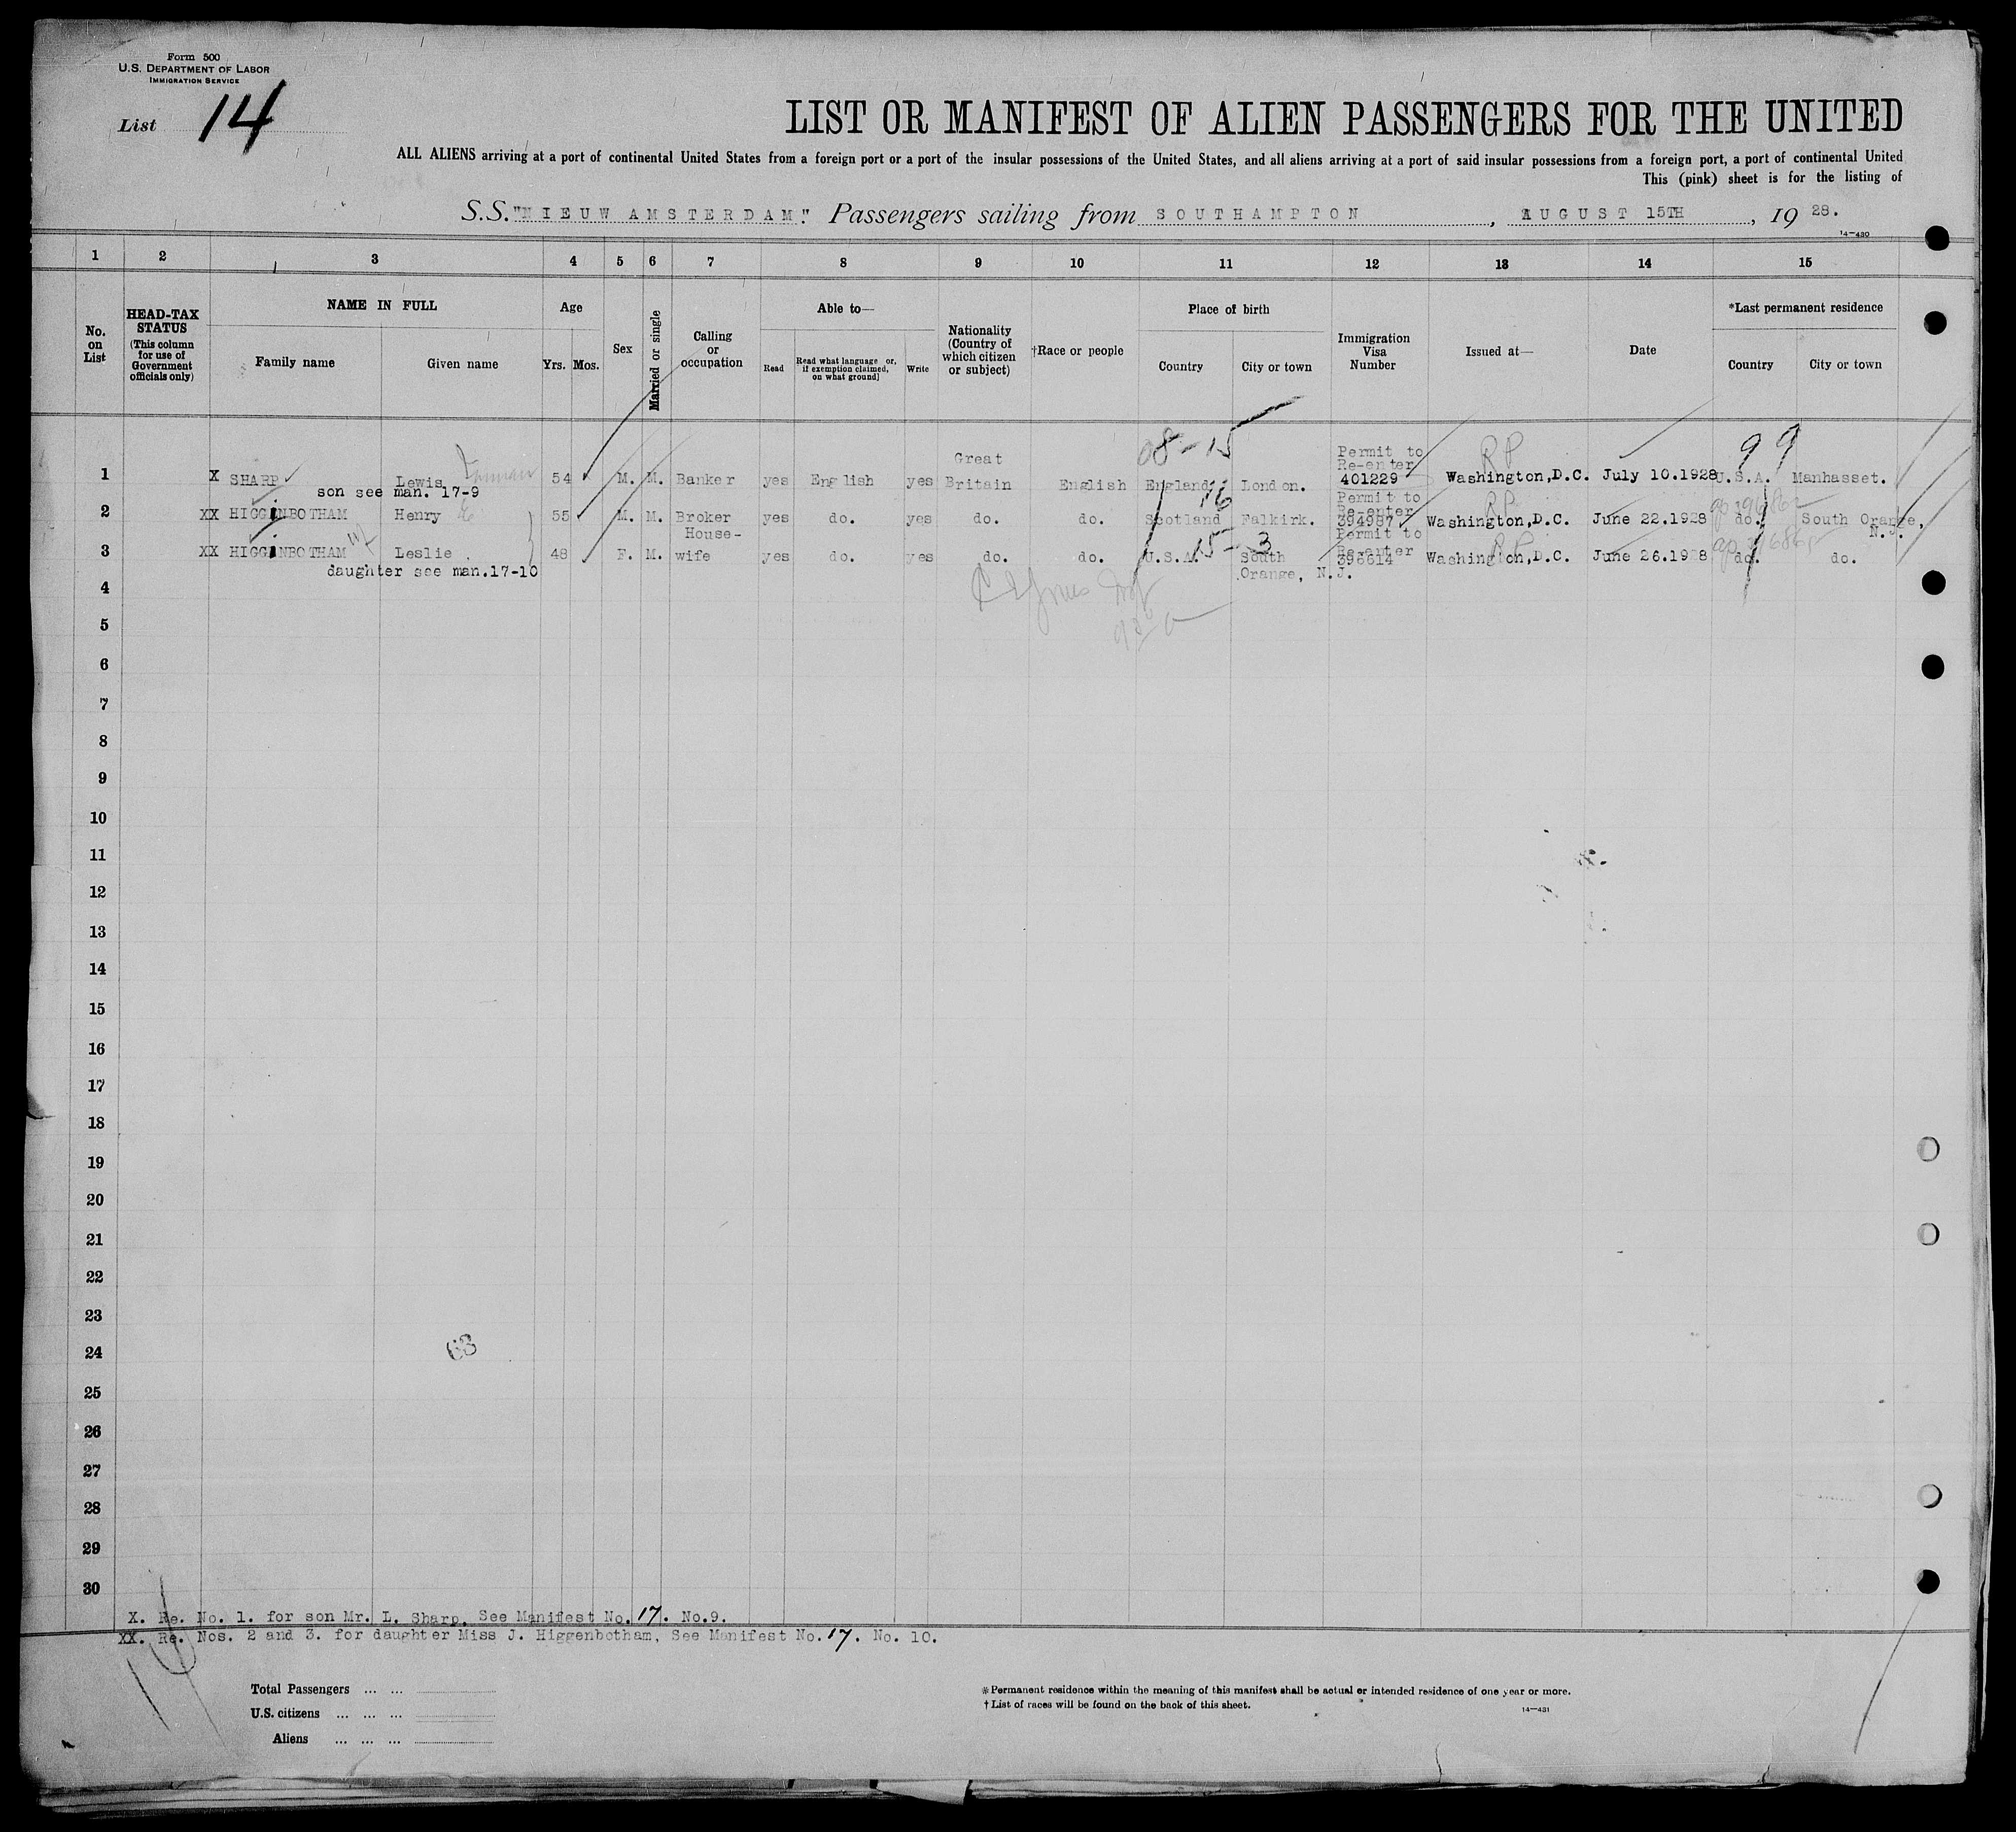 Form 500
U.S. DEPARTMENT OF LABOR
IMMIGRATION SERVICE
List 14
LIST OR MANIFEST OF ALIEN PASSENGERS FOR THE UNITED
ALL ALIENS arriving at a port of continental United States from a foreign port or a port of the insular possessions of the United States, and all aliens arriving at a port of said insular possessions from a foreign port, a port of continental United
This (pink) sheet is for the listing of
S.S. "NIEUW AMSTERDAM". Passengers sailing from SOUTHAMPTON, AUGUST 15TH, 19 28.
14-430
1 2 3 4 5 6 7 8 9 10 11 12 13 14 15
No. on List
HEAD-TAX STATUS (This column for use of Government officials only)
NAME IN FULL
Family name Given name
Age
Yrs. Mos.
Sex
Married or single
Calling or occupation
Able to—
Read
Read what language or, if exemption claimed, on what ground]
Write
Nationality (Country of which citizen or subject)
†Race or people
Place of birth
Country City or town
Immigration Visa Number
Issued at—
Date
*Last permanent residence
Country City or town
08-15 99
1 X SHARP Lewis 54 M. M. Banker yes English yes Great Britain English England London. Permit to Re-enter 401229 RP Washington,D.C. July 10.1928 U.S.A. Manhasset.
son see man. 17-9
16
2 XX HIGGINBOTHAM Henry E 55 M. M. Broker yes do. yes do. do. Scotland Falkirk. Permit to Re-enter 394987 RP Washington,D.C. June 22.1928 do. South Orange, N.J.
15-3
3 XX HIGGINBOTHAM Leslie 48 F. M. House-wife yes do. yes do. do. U.S.A. South Orange, N.J. Permit to Re-enter 396614 RP Washington,D.C. June 26.1928 do. do.
daughter see man.17-10
4
5
6
7
8
9
10
11
12
13
14
15
16
17
18
19
20
21
22
23
24
25
26
27
28
29
30
63
X. Re. No. 1. for son Mr. L. Sharp. See Manifest No. 17. No.9.
XX. Re. Nos. 2 and 3. for daughter Miss J. Higgenbotham, See Manifest No. 17. No. 10.
Total Passengers ... ...
U.S. citizens ... ... ...
Aliens ... ... ...
*Permanent residence within the meaning of this manifest shall be actual or intended residence of one year or more.
†List of races will be found on the back of this sheet.
14-431